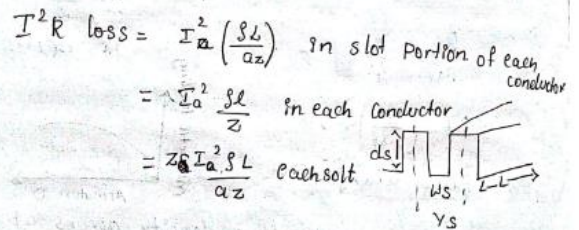 I²R loss = I_a² (ρL/a_z) in slot portion of each
conductor
= I_a² ρl/z in each conductor
= Z_s I_a² ρL/a_z each solt
ds
L
Ws
Ys